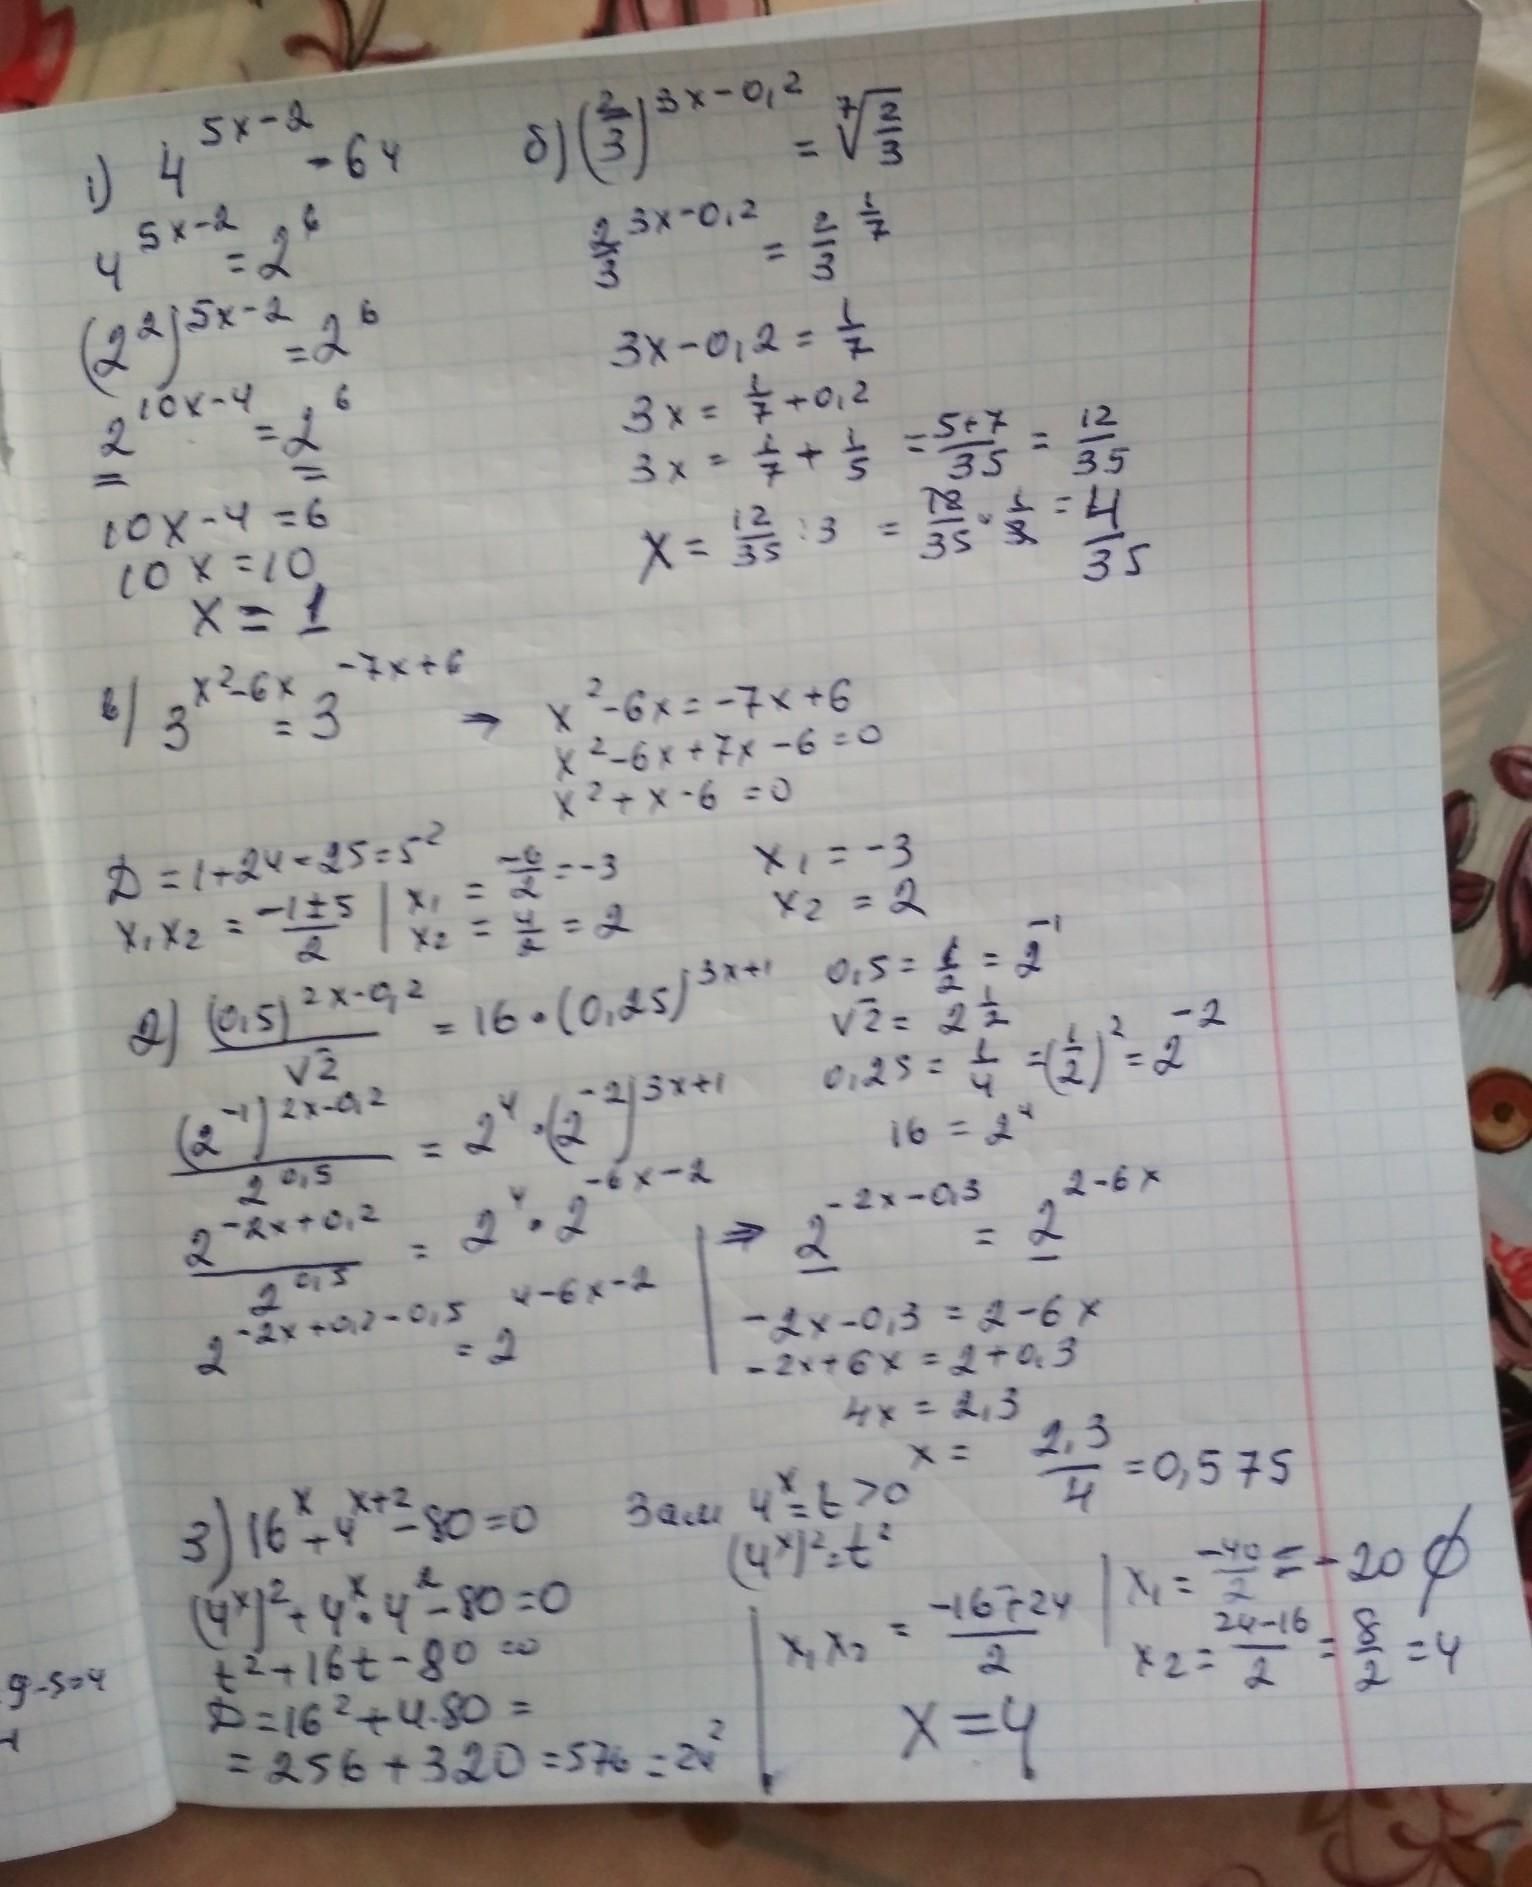 1) 4^(5x-2) = 64
4^(5x-2) = 2^6
(2^2)^(5x-2) = 2^6
2^(10x-4) = 2^6
10x-4 = 6
10x = 10
x = 1
б) (2/3)^(3x-0,2) = ⁷√(2/3)
2/3^(3x-0,2) = 2/3^(1/7)
3x-0,2 = 1/7
3x = 1/7 + 0,2
3x = 1/7 + 1/5 = (5+7)/35 = 12/35
x = 12/35 : 3 = 12/35 · 1/3 = 4/35
в) 3^(x²-6x) = 3^(-7x+6) → x²-6x = -7x+6
x²-6x+7x-6=0
x²+x-6=0
D = 1+24=25=5²
x₁x₂ = (-1±5)/2 | x₁ = -6/2 = -3
x₂ = 4/2 = 2
x₁ = -3
x₂ = 2
2) (0,5)^(2x-0,2)/√2 = 16·(0,25)^(3x+1)
0,5 = 1/2 = 2^(-1)
√2 = 2^(1/2)
0,25 = 1/4 = (1/2)² = 2^(-2)
16 = 2^4
(2^(-1))^(2x-0,2)/2^(0,5) = 2^4·(2^(-2))^(3x+1)
2^(-2x+0,2)/2^(0,5) = 2^4·2^(-6x-2)
2^(-2x+0,2-0,5) = 2^(4-6x-2)
⇒ 2^(-2x-0,3) = 2^(2-6x)
-2x-0,3 = 2-6x
-2x+6x = 2+0,3
4x = 2,3
x = 2,3/4 = 0,575
3) 16^x+4^(x+2)-80=0 Зам 4^x=t>0
(4^x)²=t²
(4^x)²+4^x·4²-80=0
t²+16t-80=0
D=16²+4·80=
=256+320=576=24²
x₁x₂ = (-16∓24)/2 | x₁ = -40/2 = -20 ∅
x₂ = (24-16)/2 = 8/2 = 4
x=4
9-5=4